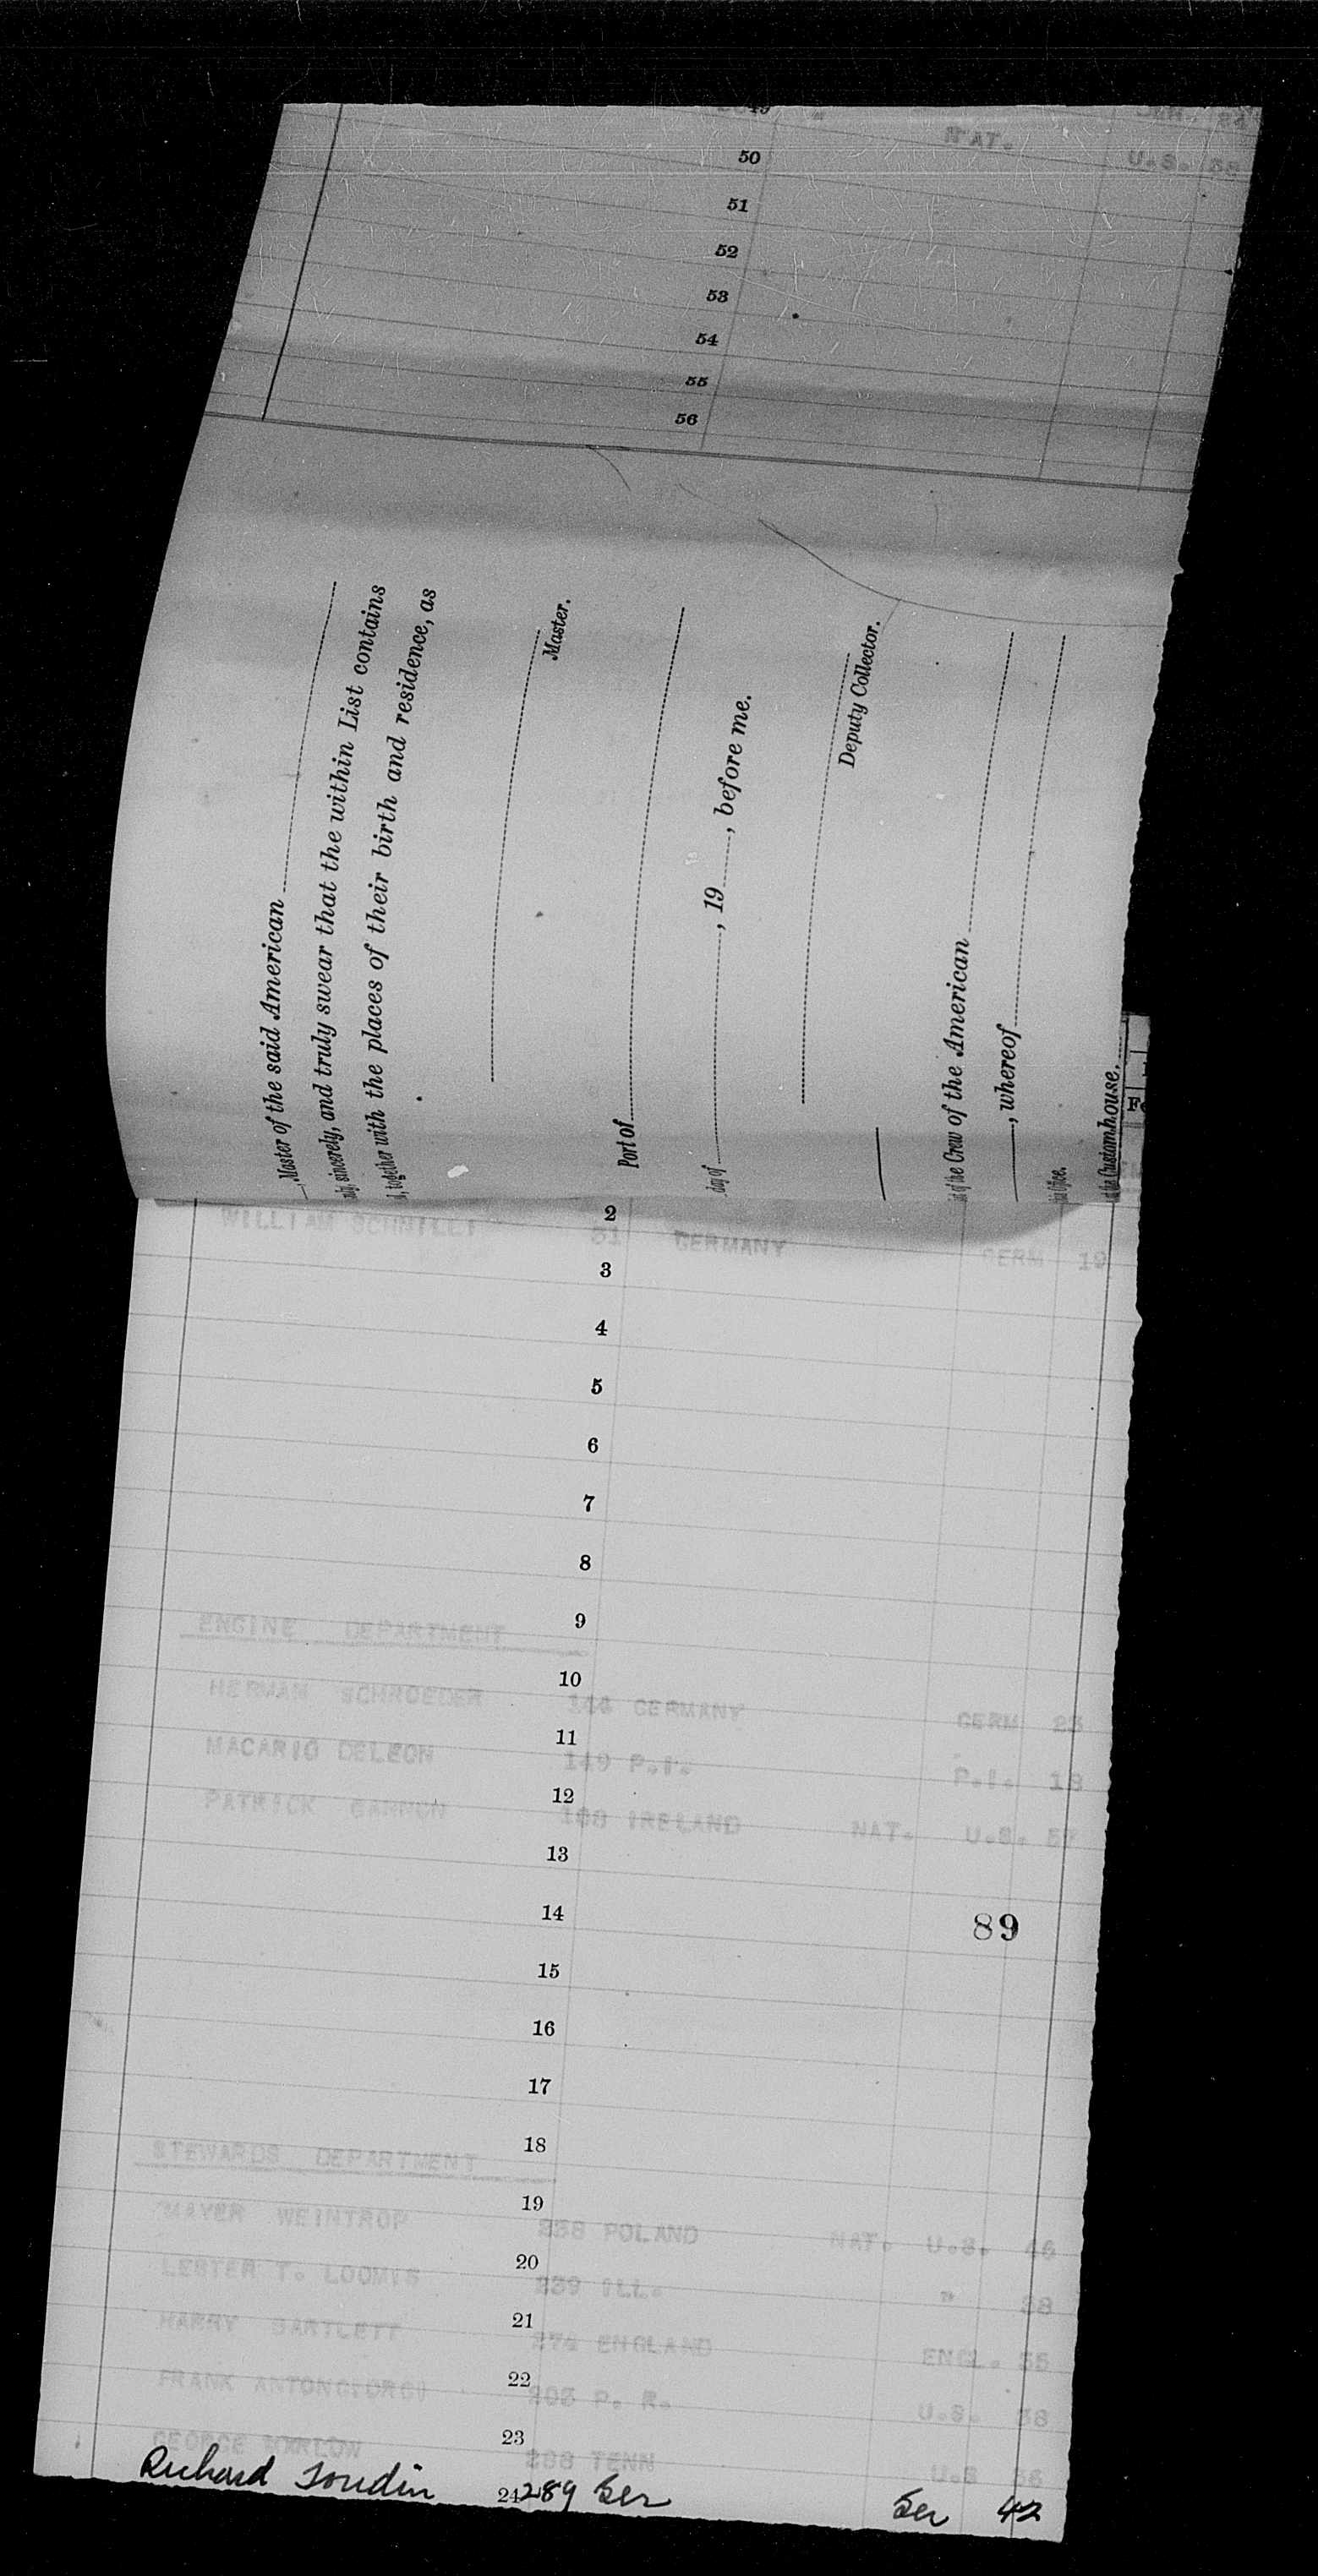 49 "
50 NAT. U.S.
51
52
53
54
55
56
Master of the said American
sincerely, and truly swear that the within List contains
together with the places of their birth and residence, as
Master.
Port of
day of , 19 , before me.
Deputy Collector.
of the Crew of the American
, whereof
Customhouse.
2
WILLIAM 51 GERMANY GERM 19
3
4
5
6
7
8
9
ENGINE DEPARTMENT
10
HERMAN SCHROEDER 144 GERMANY GERM 23
11
MACARIO DELEON 149 P.I. P.I. 18
12
PATRICK 168 IRELAND NAT. U.S.
13
14 89
15
16
17
18
STEWARDS DEPARTMENT
19
MAYER WEINTROP 238 POLAND NAT. U.S. 46
20
LESTER T. LOOMIS 239 ILL. " 38
21
HARRY BARTLETT 274 ENGLAND ENGL. 35
22
FRANK P. R. U.S. 38
23
GEORGE MARLOW TENN U.S
Richard 24 289 Ger Ger 42